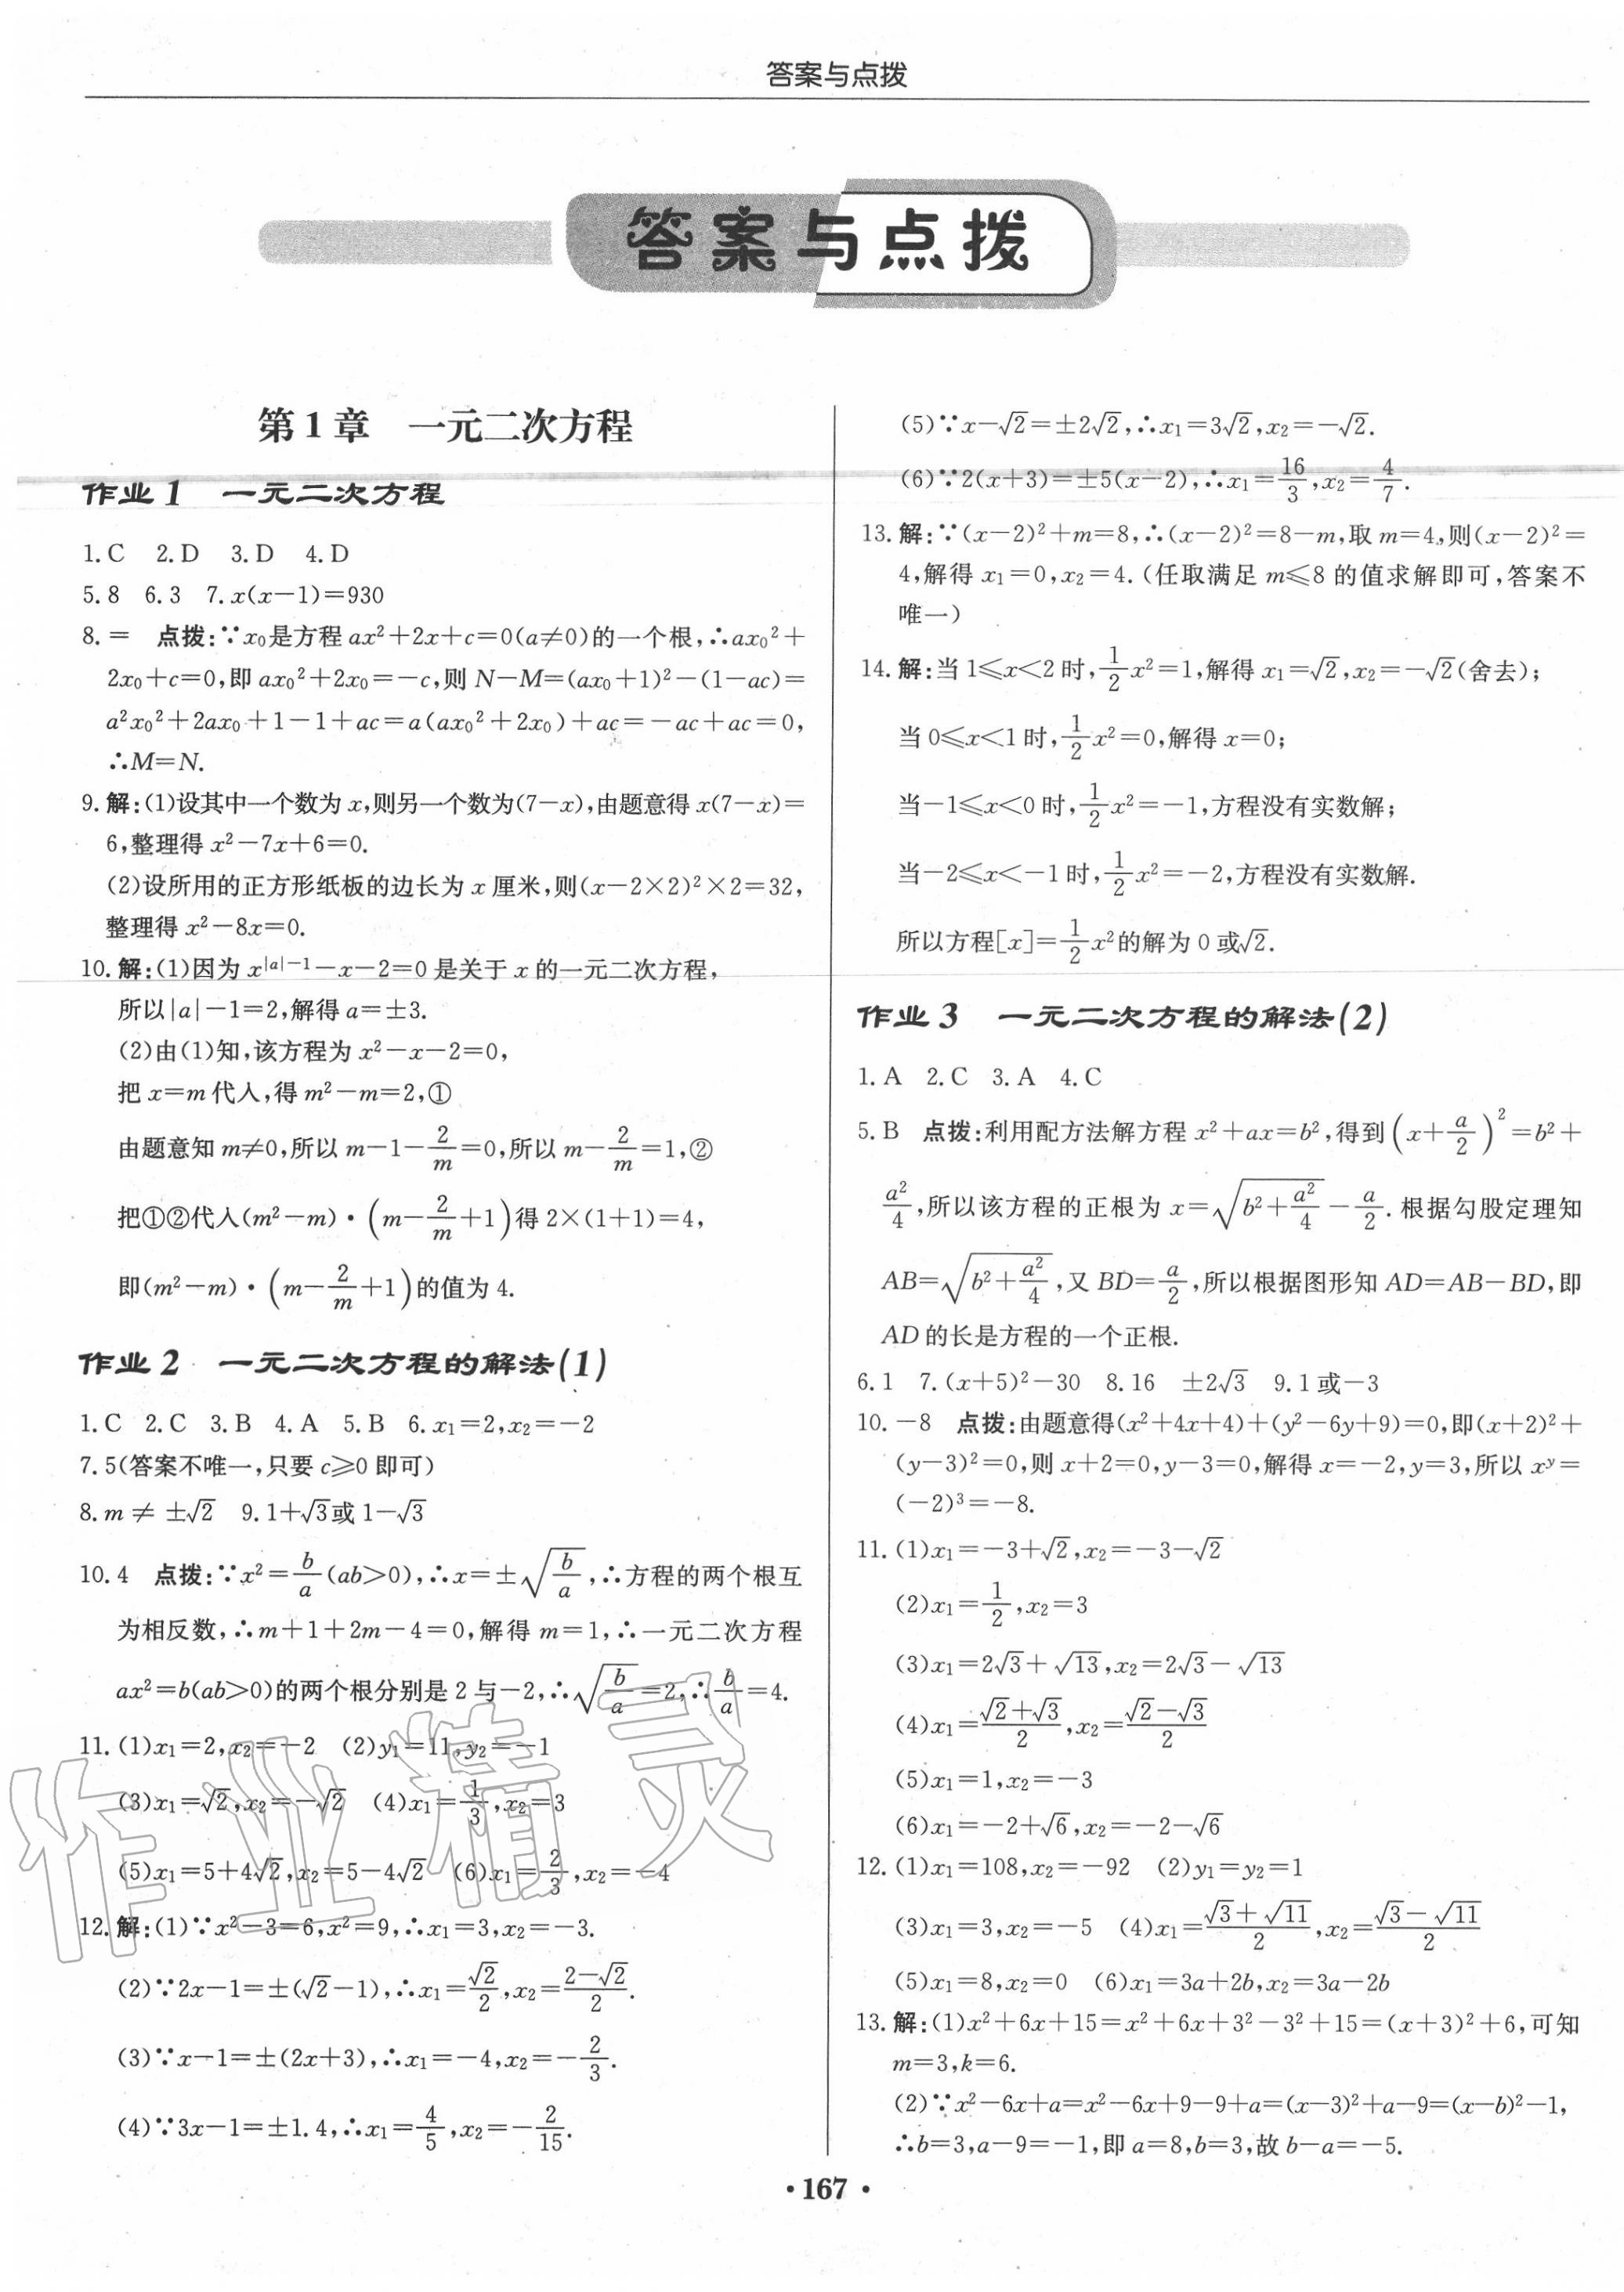 答案与点拨
答案与点拨
第1章 一元二次方程
作业1 一元二次方程
1.C 2.D 3.D 4.D
5.8 6.3 7.x(x−1)=930
8.= 点拨:∵x₀是方程ax²+2x+c=0(a≠0)的一个根,∴ax₀²+
2x₀+c=0,即ax₀²+2x₀=−c,则N−M=(ax₀+1)²−(1−ac)=
a²x₀²+2ax₀+1−1+ac=a(ax₀²+2x₀)+ac=−ac+ac=0,
∴M=N.
9.解:(1)设其中一个数为x,则另一个数为(7−x),由题意得x(7−x)=
6,整理得x²−7x+6=0.
(2)设所用的正方形纸板的边长为x厘米,则(x−2×2)²×2=32,
整理得x²−8x=0.
10.解:(1)因为x^{|a|−1}−x−2=0是关于x的一元二次方程,
所以|a|−1=2,解得a=±3.
(2)由(1)知,该方程为x²−x−2=0,
把x=m代入,得m²−m=2,①
由题意知m≠0,所以m−1−2/m=0,所以m−2/m=1,②
把①②代入(m²−m)·(m−2/m+1)得2×(1+1)=4,
即(m²−m)·(m−2/m+1)的值为4.
作业2 一元二次方程的解法(1)
1.C 2.C 3.B 4.A 5.B 6.x₁=2,x₂=−2
7.5(答案不唯一,只要c≥0即可)
8.m≠±√2 9.1+√3或1−√3
10.4 点拨:∵x²=b/a(ab>0),∴x=±√(b/a),∴方程的两个根互
为相反数,∴m+1+2m−4=0,解得m=1,∴一元二次方程
ax²=b(ab>0)的两个根分别是2与−2,∴√(b/a)=2,∴b/a=4.
11.(1)x₁=2,x₂=−2 (2)y₁=11,y₂=−1
(3)x₁=√2,x₂=−√2 (4)x₁=1/3,x₂=3
(5)x₁=5+4√2,x₂=5−4√2 (6)x₁=2/3,x₂=−4
12.解:(1)∵x²−3=6,x²=9,∴x₁=3,x₂=−3.
(2)∵2x−1=±(√2−1),∴x₁=√2/2,x₂=(2−√2)/2.
(3)∵x−1=±(2x+3),∴x₁=−4,x₂=−2/3.
(4)∵3x−1=±1.4,∴x₁=4/5,x₂=−2/15.
(5)∵x−√2=±2√2,∴x₁=3√2,x₂=−√2.
(6)∵2(x+3)=±5(x−2),∴x₁=16/3,x₂=4/7.
13.解:∵(x−2)²+m=8,∴(x−2)²=8−m,取m=4,则(x−2)²=
4,解得x₁=0,x₂=4.(任取满足m≤8的值求解即可,答案不
唯一)
14.解:当1≤x<2时,1/2x²=1,解得x₁=√2,x₂=−√2(舍去);
当0≤x<1时,1/2x²=0,解得x=0;
当−1≤x<0时,1/2x²=−1,方程没有实数解;
当−2≤x<−1时,1/2x²=−2,方程没有实数解.
所以方程[x]=1/2x²的解为0或√2.
作业3 一元二次方程的解法(2)
1.A 2.C 3.A 4.C
5.B 点拨:利用配方法解方程x²+ax=b²,得到(x+a/2)²=b²+
a²/4,所以该方程的正根为x=√(b²+a²/4)−a/2.根据勾股定理知
AB=√(b²+a²/4),又BD=a/2,所以根据图形知AD=AB−BD,即
AD的长是方程的一个正根.
6.1 7.(x+5)²−30 8.16 ±2√3 9.1或−3
10.−8 点拨:由题意得(x²+4x+4)+(y²−6y+9)=0,即(x+2)²+
(y−3)²=0,则x+2=0,y−3=0,解得x=−2,y=3,所以x^y=
(−2)³=−8.
11.(1)x₁=−3+√2,x₂=−3−√2
(2)x₁=1/2,x₂=3
(3)x₁=2√3+√13,x₂=2√3−√13
(4)x₁=(√2+√3)/2,x₂=(√2−√3)/2
(5)x₁=1,x₂=−3
(6)x₁=−2+√6,x₂=−2−√6
12.(1)x₁=108,x₂=−92 (2)y₁=y₂=1
(3)x₁=3,x₂=−5 (4)x₁=(√3+√11)/2,x₂=(√3−√11)/2
(5)x₁=8,x₂=0 (6)x₁=3a+2b,x₂=3a−2b
13.解:(1)x²+6x+15=x²+6x+3²−3²+15=(x+3)²+6,可知
m=3,k=6.
(2)∵x²−6x+a=x²−6x+9−9+a=(x−3)²+a−9=(x−b)²−1,
∴b=3,a−9=−1,即a=8,b=3,故b−a=−5.
作业精灵
·167·